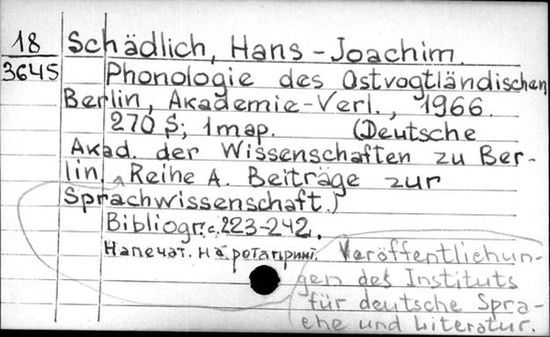 18
3645
Schädlich, Hans-Joachim.
Phonologie des Ostvogtländischen
Berlin, Akademie-Verl., 1966.
270 S; 1 map. (Deutsche
Akad. der Wissenschaften zu Ber-
lin. Reihe A. Beiträge zur
Sprachwissenschaft.)
Bibliogr.: c. 223-242.
Напечат. на ротапринт.
Veröffentlichun-
gen des Instituts
für deutsche Spra-
che und Literatur.